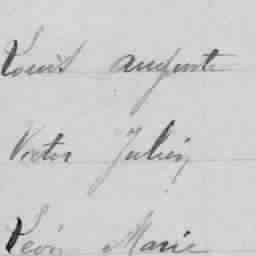 Louis Auguste
Victor Julien
Léon Marie